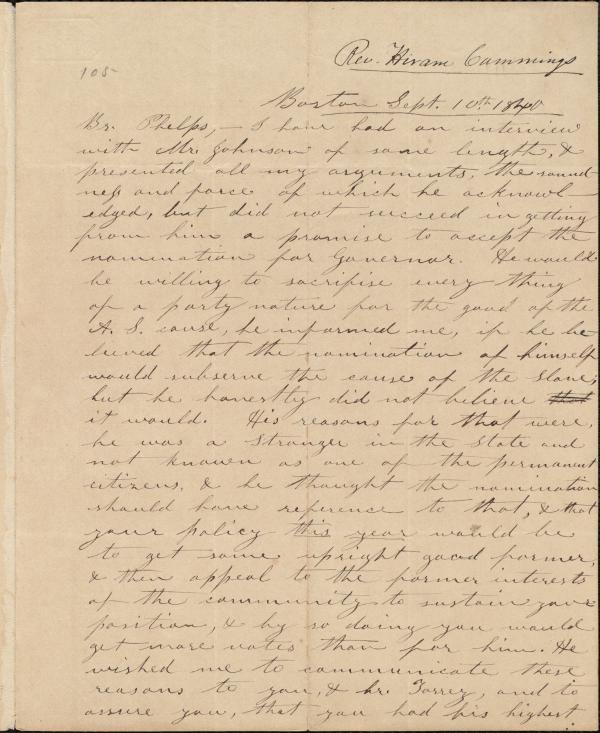 105
Rev. Hiram Cummings
Boston Sept. 10th 1840
Br. Phelps, — I have had an interview
with Mr. Johnson of some length, &
presented all my arguments, the sound-
ness and force of which he acknowl-
edged, but did not succeed in getting
from him a promise to accept the
nomination for Governor. He would
be willing to sacrifise every thing
of a party nature for the good of the
A. S. cause, he informed me, if he be-
lieved that the nomination of himself
would subserve the cause of the slave;
but he honestly did not believe that
it would. His reasons for that were,
he was a stranger in the State and
not known as one of the permanent
citizens, & he thought the nomination
should have reference to that, & that
your policy this year would be
to get some upright good farmer,
& then appeal to the farmer interests
of the community to sustain your
position, & by so doing you would
get more votes than for him. He
wished me to communicate these
reasons to you, & br. Torrey, and to
assure you, that you had his highest